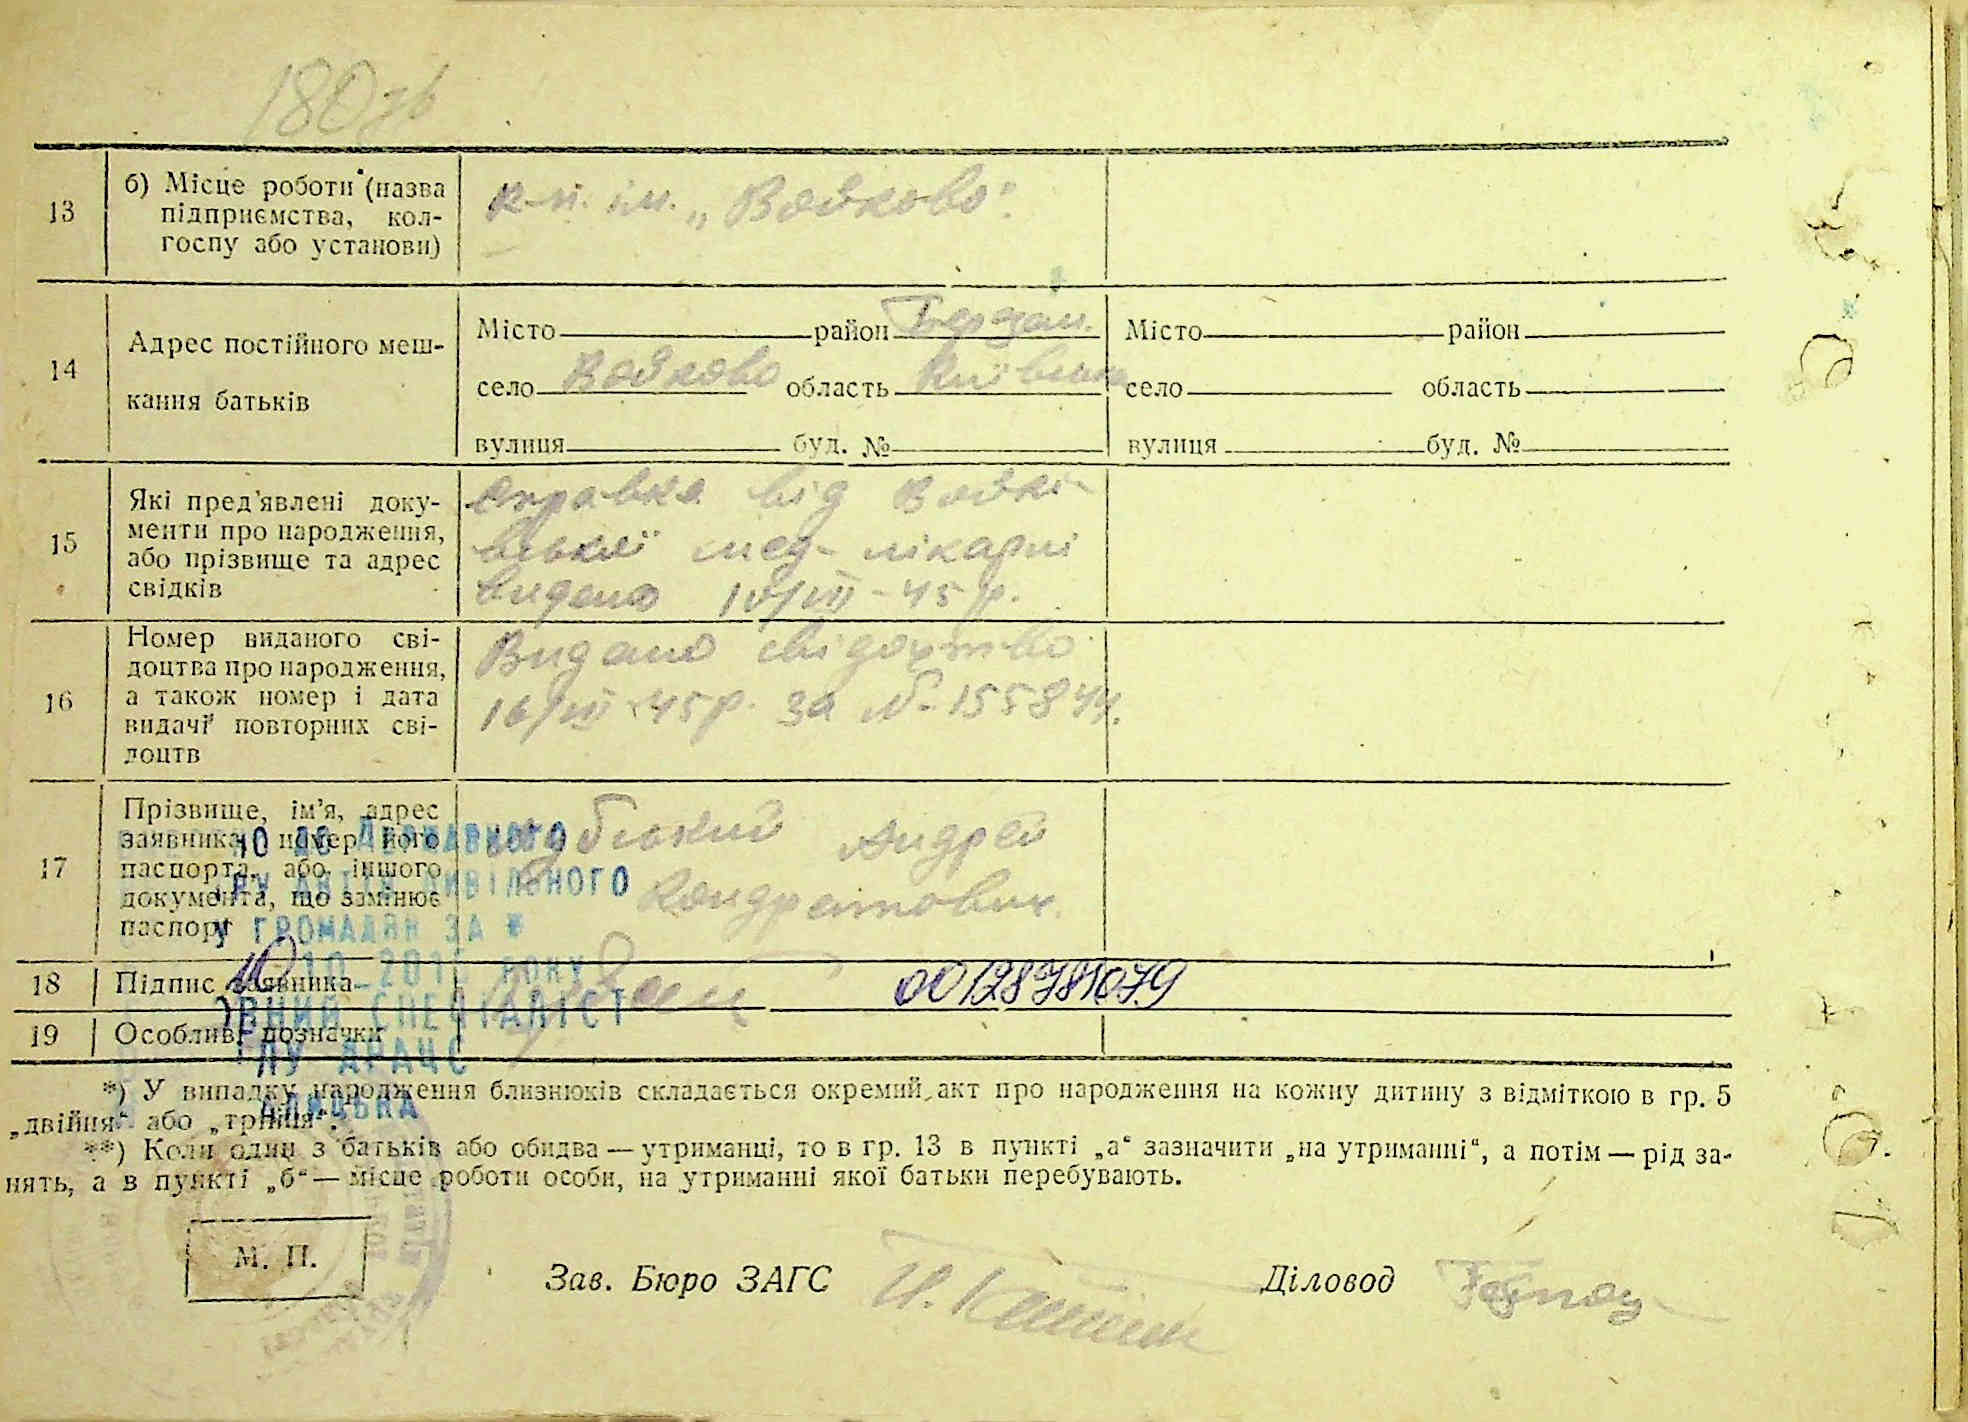 180 зв
13
б) Місце роботи (назва
підприємства, кол-
госпу або установи)
к-п. ім. „Войково".
14
Адрес постійного меш-
кання батьків
Місто район Березан.
село Войково область Київська
вулиця буд. №
Місто район
село область
вулиця буд. №
15
Які пред'явлені доку-
менти про народження,
або прізвище та адрес
свідків
Справка від Войкі-
вської мед-лікарні
видано 10/VII-45 р.
16
Номер виданого сві-
доцтва про народження,
а також номер і дата
видачі повторних сві-
доцтв
Видано свідоцтво
16/VII-45 р. за №-155844.
17
Прізвище, ім'я, адрес
заявника і номер його
паспорта, або іншого
документа, що замінює
паспорт
Андрей
Кондратович
ДО ДЕРЖАВНОГО
АКТІВ ЦИВІЛЬНОГО
ГРОМАДЯН ЗА *
РОКУ
СПЕЦІАЛІСТ
ДРАЦС
18
Підпис заявника
00128781079
19
Особливі позначки
*) У випадку народження близнюків складається окремий акт про народження на кожну дитину з відміткою в гр. 5
„двійня" або „трійня".
**) Коли один з батьків або обидва — утриманці, то в гр. 13 в пункті „а" зазначити „на утриманні", а потім — рід за-
нять, а в пункті „б" — місце роботи особи, на утриманні якої батьки перебувають.
М. П.
Зав. Бюро ЗАГС
Діловод